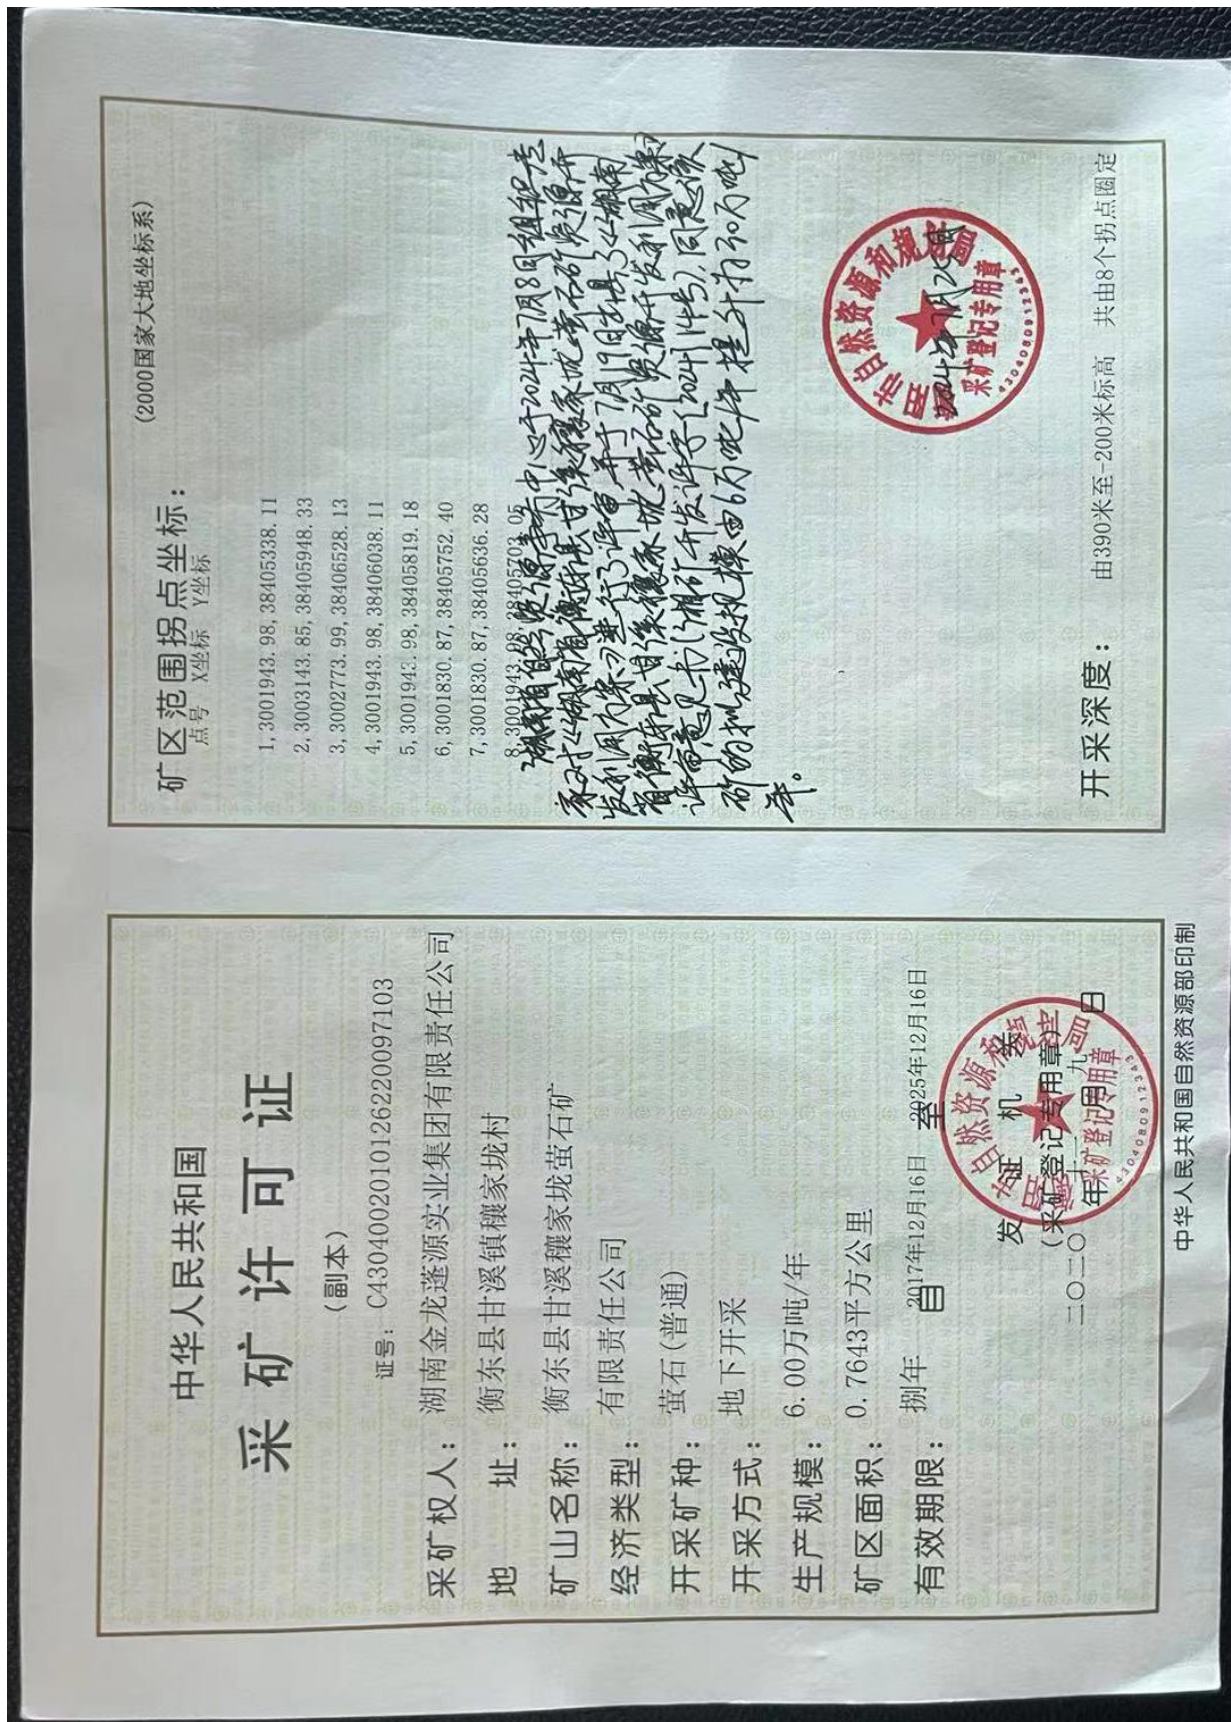 中华人民共和国
采矿许可证
(副本)
证号: C4304002010126220097103
采矿权人: 湖南金龙蓬源实业集团有限责任公司
地 址: 衡东县甘溪镇穰家垅村
矿山名称: 衡东县甘溪穰家垅萤石矿
经济类型: 有限责任公司
开采矿种: 萤石(普通)
开采方式: 地下开采
生产规模: 6.00万吨/年
矿区面积: 0.7643平方公里
有效期限: 捌年 自 2017年12月16日 至 2025年12月16日
发 证 机 关
(采矿登记专用章)
二〇二〇年十二月九日
自然资源和规划局
采矿登记专用章
4304080912343
中华人民共和国自然资源部印制
矿区范围拐点坐标: (2000国家大地坐标系)
点号 X坐标 Y坐标
1,3001943.98,38405338.11
2,3003143.85,38405948.33
3,3002773.99,38406528.13
4,3001943.98,38406038.11
5,3001943.98,38405819.18
6,3001830.87,38405752.40
7,3001830.87,38405636.28
8,3001943.98,38405703.05
湖南省自然资源事务中心于2024年7月8日组织专
家对《湖南省衡东县甘溪穰家垅萤石矿资源开
发利用方案》进行了评审并于7月19日出具了《湖南
省衡东县甘溪穰家垅萤石矿资源开发利用方案》
评审意见书(湘矿开发评字〔2024〕14号),同意该
矿的拟建设规模由6万吨/年提升为30万吨/
年。
市自然资源和规划局
采矿登记专用章
4304080912343
开采深度: 由390米至-200米标高 共由8个拐点圈定